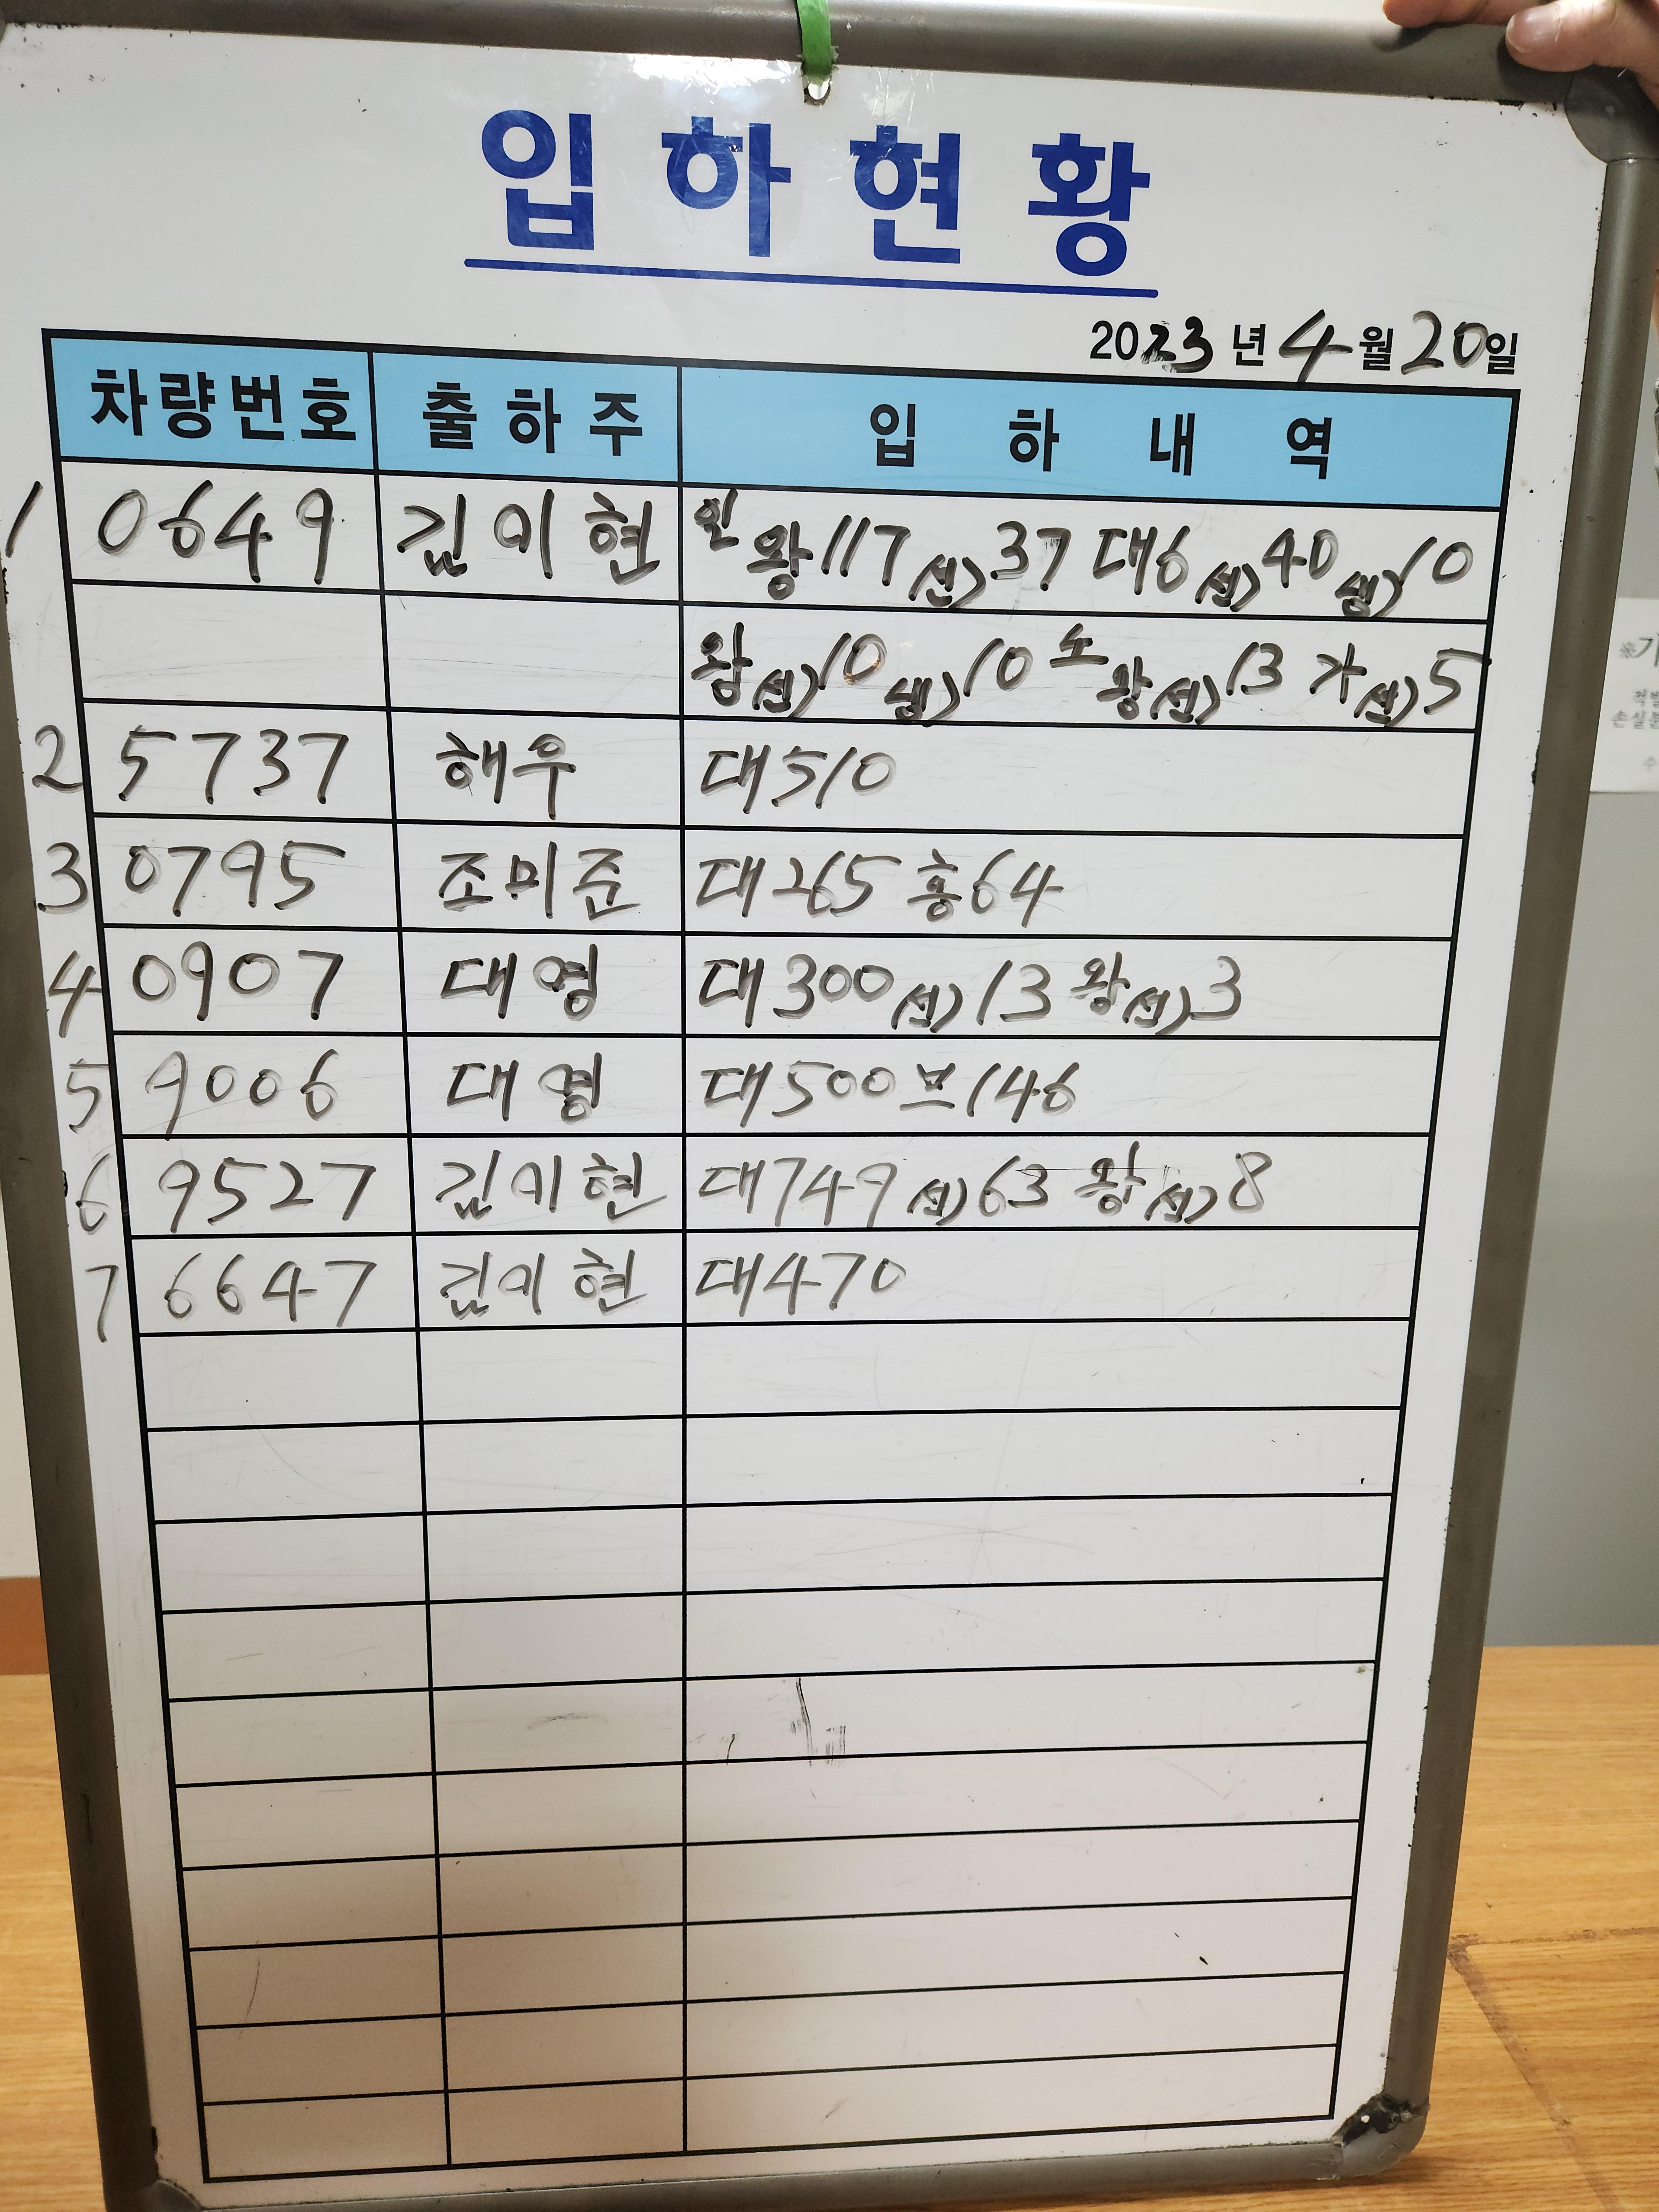 입하현황
2023년 4월 20일
차량번호 출하주 입하내역
1 0649 김이현 왕117 선)37 대6 선)40 냉)10
왕선)10 냉)10 소왕(선)13 가(선)5
2 5737 해우 대510
3 0795 조미준 대265 홍64
4 0907 대영 대300 (선)13 왕(선)3
5 9006 대영 대500 브146
6 9527 김이현 대749 (선)63 왕(선)8
7 6647 김이현 대470